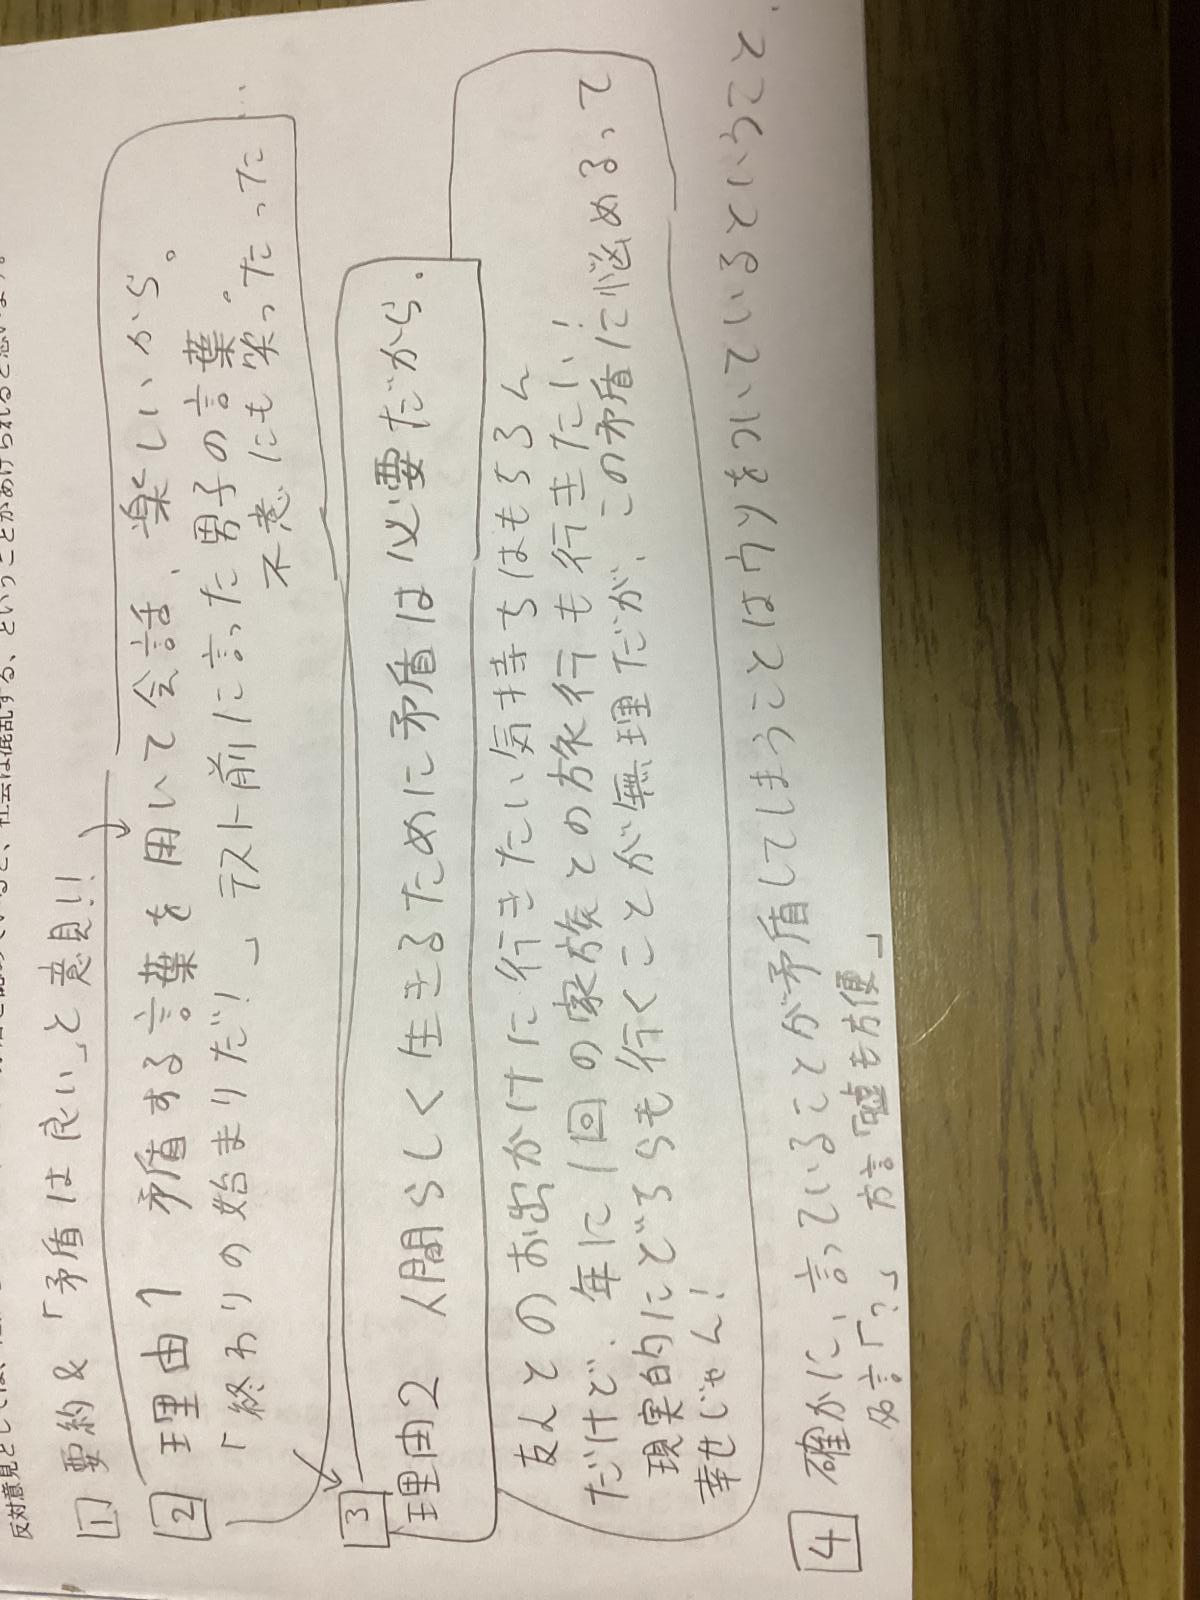 反対意見としては、
と、社会は混乱する、ということがあげられると思います。
1 要約&「矛盾は良い」と意見!!
2 理由1 矛盾する言葉を用いて会話、楽しいから。
「終わりの始まりだ!」テスト前に言った男子の言葉。
不意にも笑ったった…
3 理由2 人間らしく生きるために矛盾は必要だから.
友人とのお出かけに行きたい気持ちはもちろん
だけど、年に1回の家族との旅行も行きたい!
現実的にどちらも行くことが無理だが、この矛盾に悩めるって
幸せじゃん!
4 確かに、言っていることが矛盾してしまうことはウソをついているということ.
名言「?」 方言「嘘も方便」